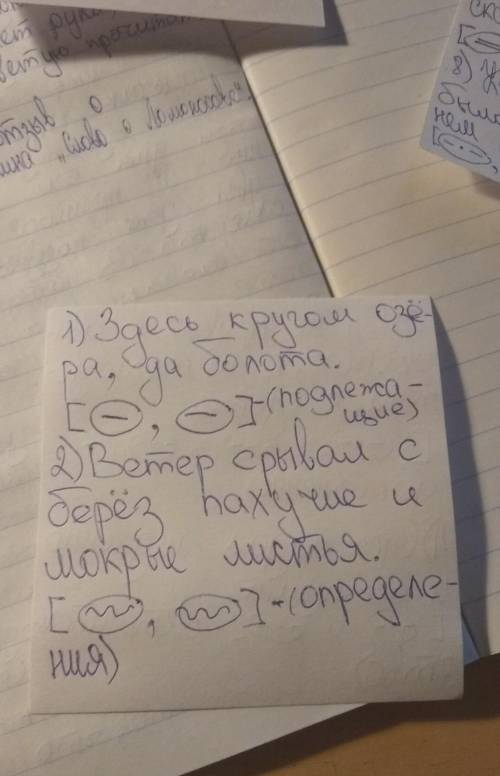 рук
ветую прочитат
отзыв о
"Слово о Ломоносове".
ск
8) У
было
нем
1) Здесь кругом озё-
ра, да болота.
[(—), (—)]-(подлежа-
щие)
2) Ветер срывал с
берёз пахучие и
мокрые листья.
[(﹏), (﹏)]-(определе-
ния)